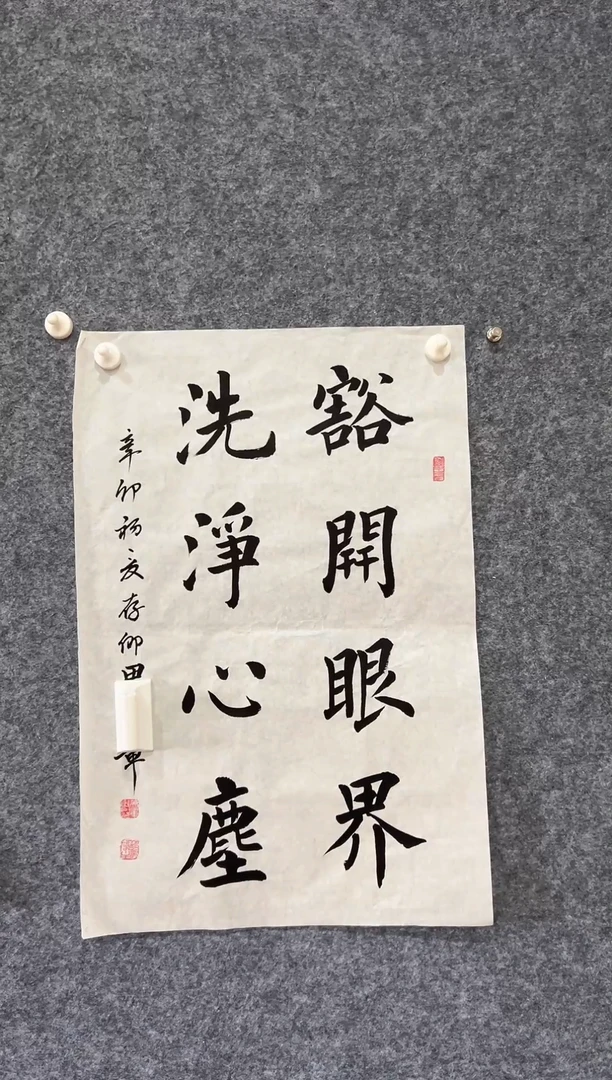 豁開眼界
洗淨心塵
辛卯初夏存仰田